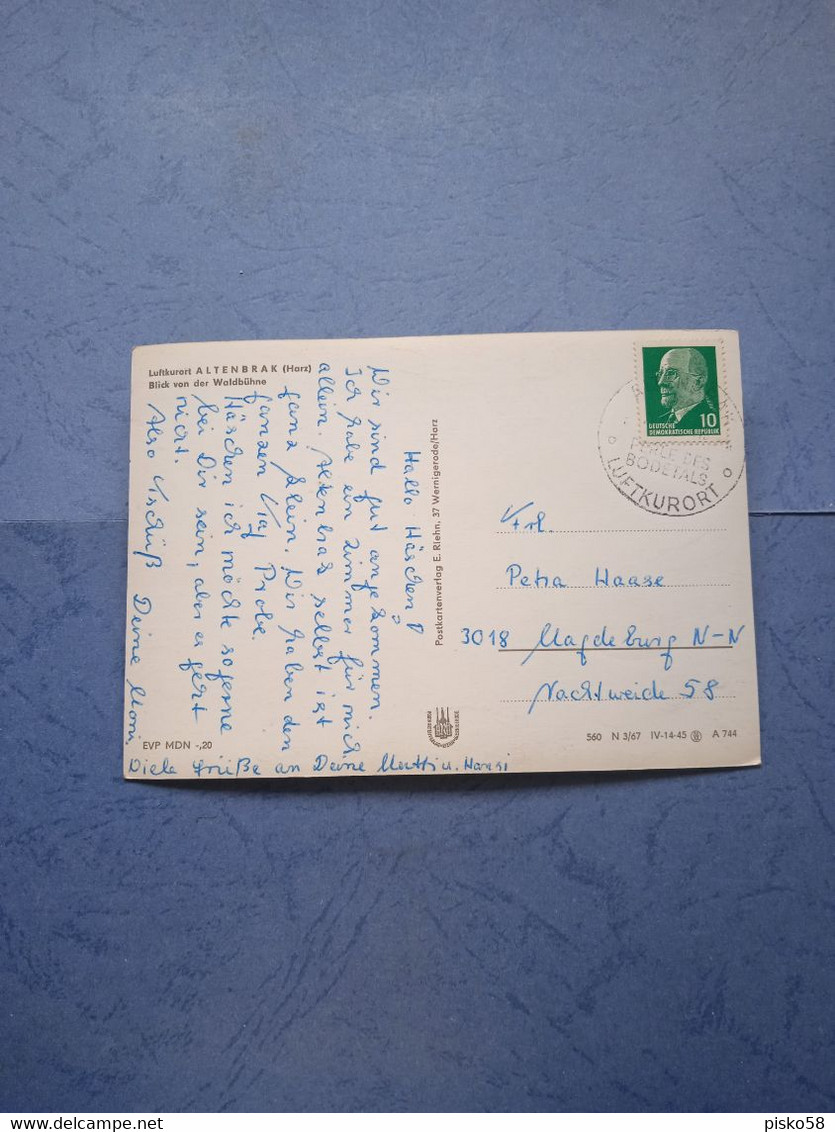 Luftkurort ALTENBRAK (Harz)
Blick von der Waldbühne
Hallo Häschen!
Wir sind gut angekommen.
Ich habe ein Zimmer für mich
allein. Altenbrak selbst ist
ganz klein. Wir haben den
ganzen Tag Probe.
Häschen ich möchte so gerne
bei Dir sein, aber es geht
nicht.
Also Tschüß Deine Moni
Viele Grüße an Deine Mutti u. Hansi
EVP MDN -,20
Postkartenverlag E. Riehn, 37 Wernigerode/Harz
DEUTSCHE
DEMOKRATISCHE REPUBLIK
10
PERLE DES
BODETALS
LUFTKURORT
Frl.
Petra Haase
3018 Magdeburg N-N
Nachtweide 58
560 N 3/67 IV-14-45 A 744
delcampe.net
pisko58